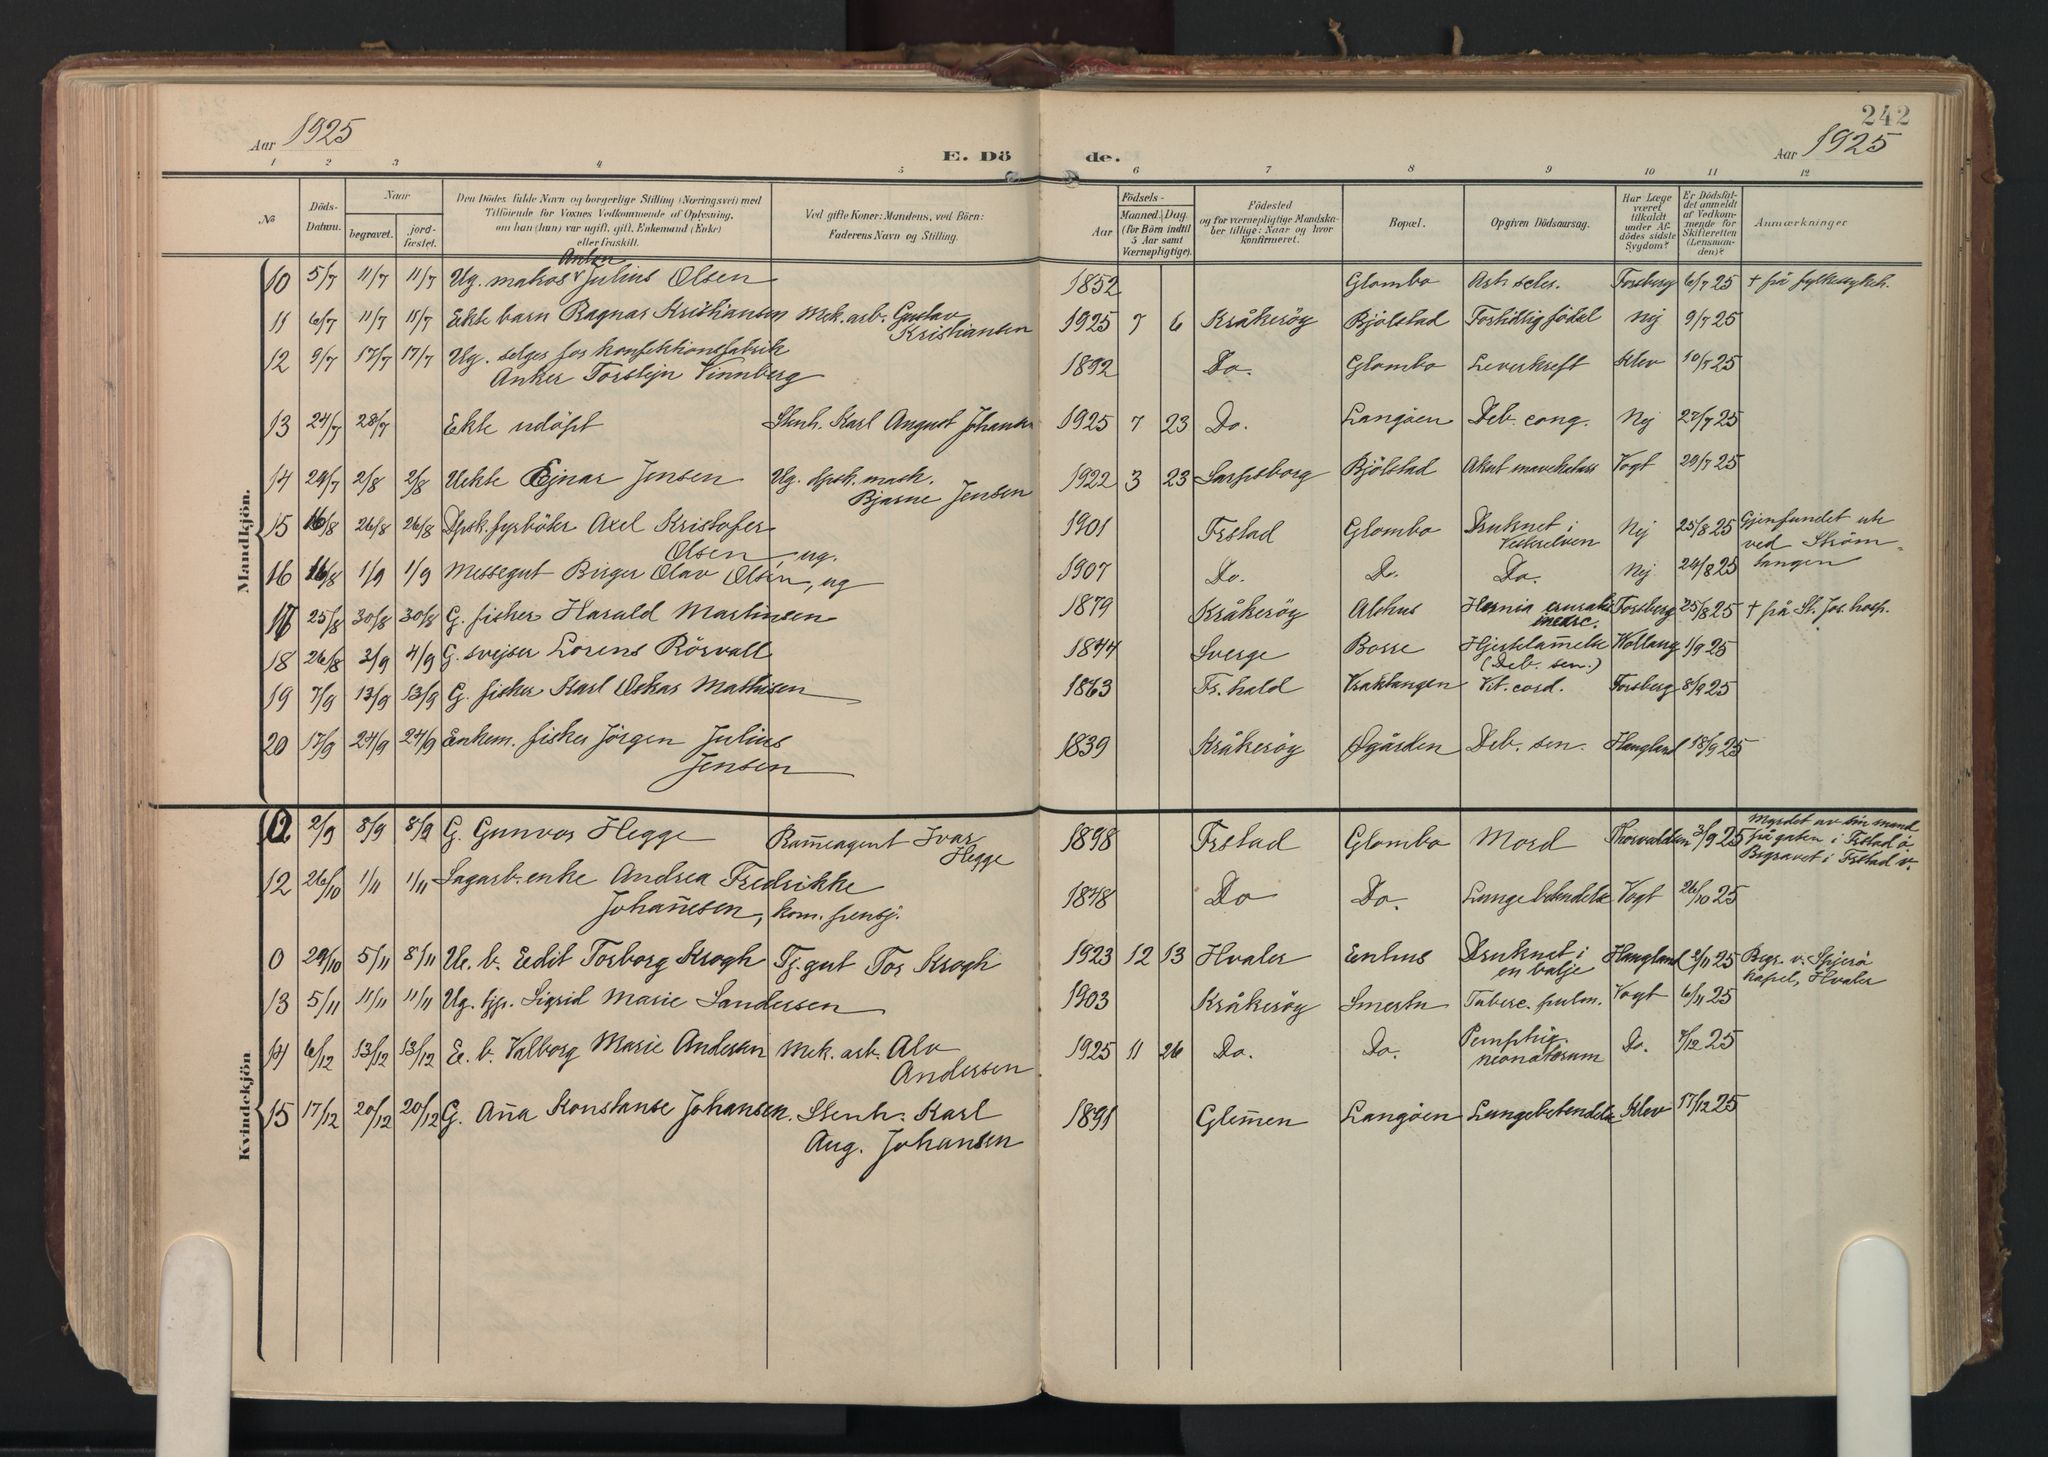 242
Aar 1925
E. Döde.
Aar 1925
1 2 3 4 5 6 7 8 9 10 11 12
№
Döds-Datum.
Naar
begravet.
jord-fæstet.
Den Dödes fulde Navn og borgerlige Stilling (Næringsvei) med
Tilföiende for Voxnes Vedkommende af Oplysning,
om han (hun) var ugift, gift, Enkemand (Enke)
eller fraskilt.
Ved gifte Koner: Mandens, ved Börn:
Faderens Navn og Stilling.
Födsels-
Aar
Maaned. Dag.
(for Börn indtil
5 Aar samt
Værnepligtige).
Födested
og for værnepligtige Mandska-
ber tillige: Naar og hvor
konfirmeret.
Bopæl.
Opgiven Dödsaarsag.
Har Læge
været
tilkaldt
under Af-
dödes sidste
Sygdom?
Er Dödsfal-
det anmeldt
af Vedkom-
mende for
Skifteretten
(Lensman-
den)?
Anmærkninger
Mandkjön.
10 5/7 11/7 11/7 Ug. matros Anton Julius Olsen 1852 Glombo Art. scler. Forsberg 6/7 25 † på fylkessykeh.
11 6/7 11/7 11/7 Ekte barn Ragnar Kristiansen Mek. arb. Gustav Kristiansen 1925 7 6 Kråkeröy Bjölstad Fortidlig födsel Nej 9/7 25
12 9/7 17/7 17/7 Ug. selger for konfektionsfabrik
Anker Torstejn Vinnberg 1892 Do. Glombo Leverkreft Klev 10/7 25
13 24/7 28/7 Ekte udöpt Stenh. Karl August Johansen 1925 7 23 Do. Langöen Deb. cong. Nej 27/7 25
14 29/7 2/8 2/8 Uekte Ejnar Jensen Ug. dpsk. mask.
Bjarne Jensen 1922 3 23 Sarpsborg Bjölstad Akut mavekatarr Vogt 29/7 25
15 16/8 26/8 26/8 Dpsk. fyrböter Axel Kristofer
Olsen, ug. 1901 Frstad Glombo Druknet i
Vesterelven Nej 25/8 25 Gjenfundet ute
ved Ström-
tangen
16 16/8 1/9 1/9 Messegut Birger Olav Olsen, ug 1907 Do. Do. Do. Nej 24/8 25
17 25/8 30/8 30/8 G. fisker Harald Martinsen 1879 Kråkeröy Alshus Hernia Forsberg 25/8 25 † på St. Jos. hosp.
18 26/8 3/9 4/9 G. svejser Lorens Rörvall 1844 Sverge Bosse Hjertelam̄else
(Deb. sen.) Kollang 1/9 25
19 7/9 13/9 13/9 G. fisker Karl Oskar Mathisen 1863 Fr. hald Kraktangen Vit. cord. Forsberg 8/9 25
20 17/9 24/9 24/9 Enkem. fisker Jörgen Julius
Jensen 1839 Kråkeröy Øgården Deb. sen. Haugland 18/9 25
Kvindekjön
12 2/9 8/9 8/9 G. Gunvor Hegge Ram̄eagent Ivar
Hegge 1898 Frstad Glombo Mord Thorvaldsen 3/9 25 Myrdet av sin mand
på gaten i Frstad ö.
Begravet i Frstad v.
12 26/10 1/11 1/11 Sagarb. enke Andrea Fredrikke
Johan̄esen, kom. pensj. 1848 Do Do. Lungebetendelse Vogt 26/10 25
0 29/10 5/11 8/11 Ue. b. Eedit Torborg Krogh Tj. gut Tor Krogh 1923 12 13 Hvaler Enhus Druknet i
en balje Haugland 2/11 25 Begr. v. Spjerö
kapel, Hvaler
13 5/11 11/11 11/11 Ug. hjp. Sigrid Marie Sandersen 1903 Kråkeröy Smertu Tuberc. pulm. Vogt 6/11 25
14 6/12 13/12 13/12 E. b. Valborg Marie Andersen Mek. arb. Alv
Andersen 1925 11 26 Do. Do. Pemphig.
neonatorum Do. 7/12 25
15 17/12 20/12 20/12 G. An̄a Konstanse Johansen. Stenh. Karl
Aug. Johansen 1891 Glem̄en Langöen Lungebetendelse Klev 17/12 25